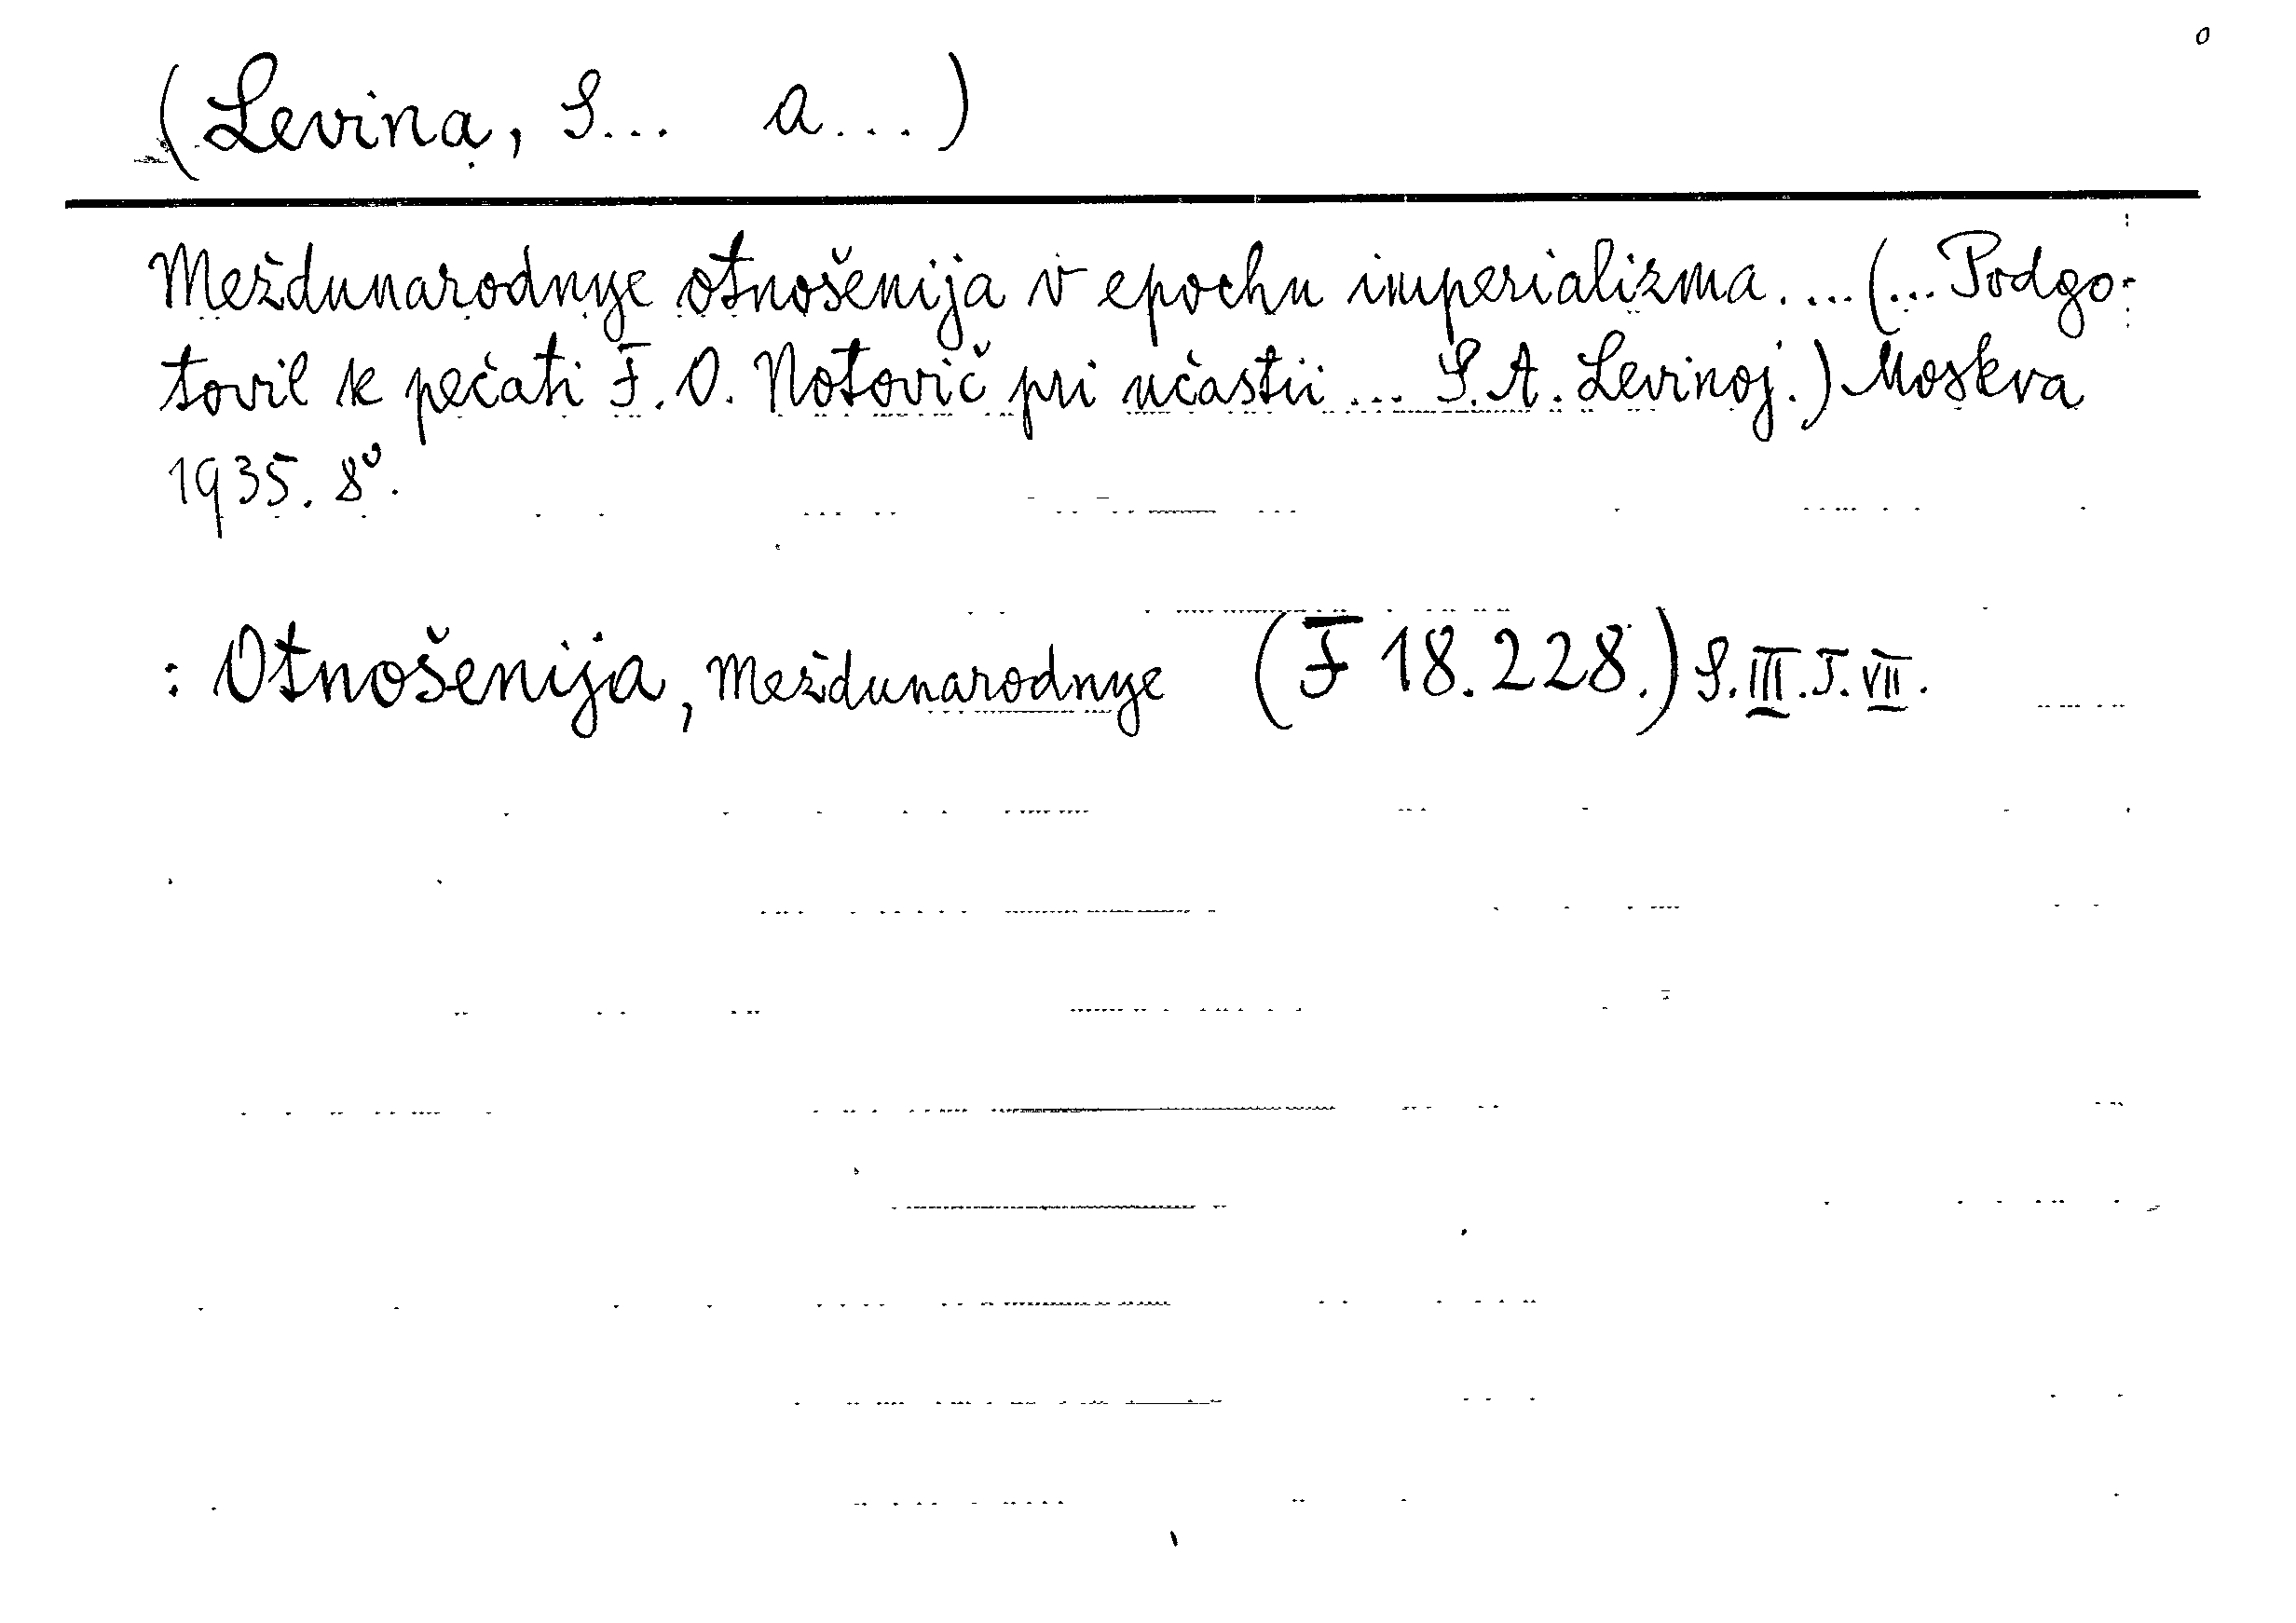 (Levina, S... A...)
Meždunarodnye otnošenija v epochu imperializma. ... (... Podgo-
tovil k pečati F. O. Notovič pri učastii ... S. A. Levinoj.) Moskva
1935. 8°.
: Otnošenija, Meždunarodnye (F 18.228.) S. III. T. VII.